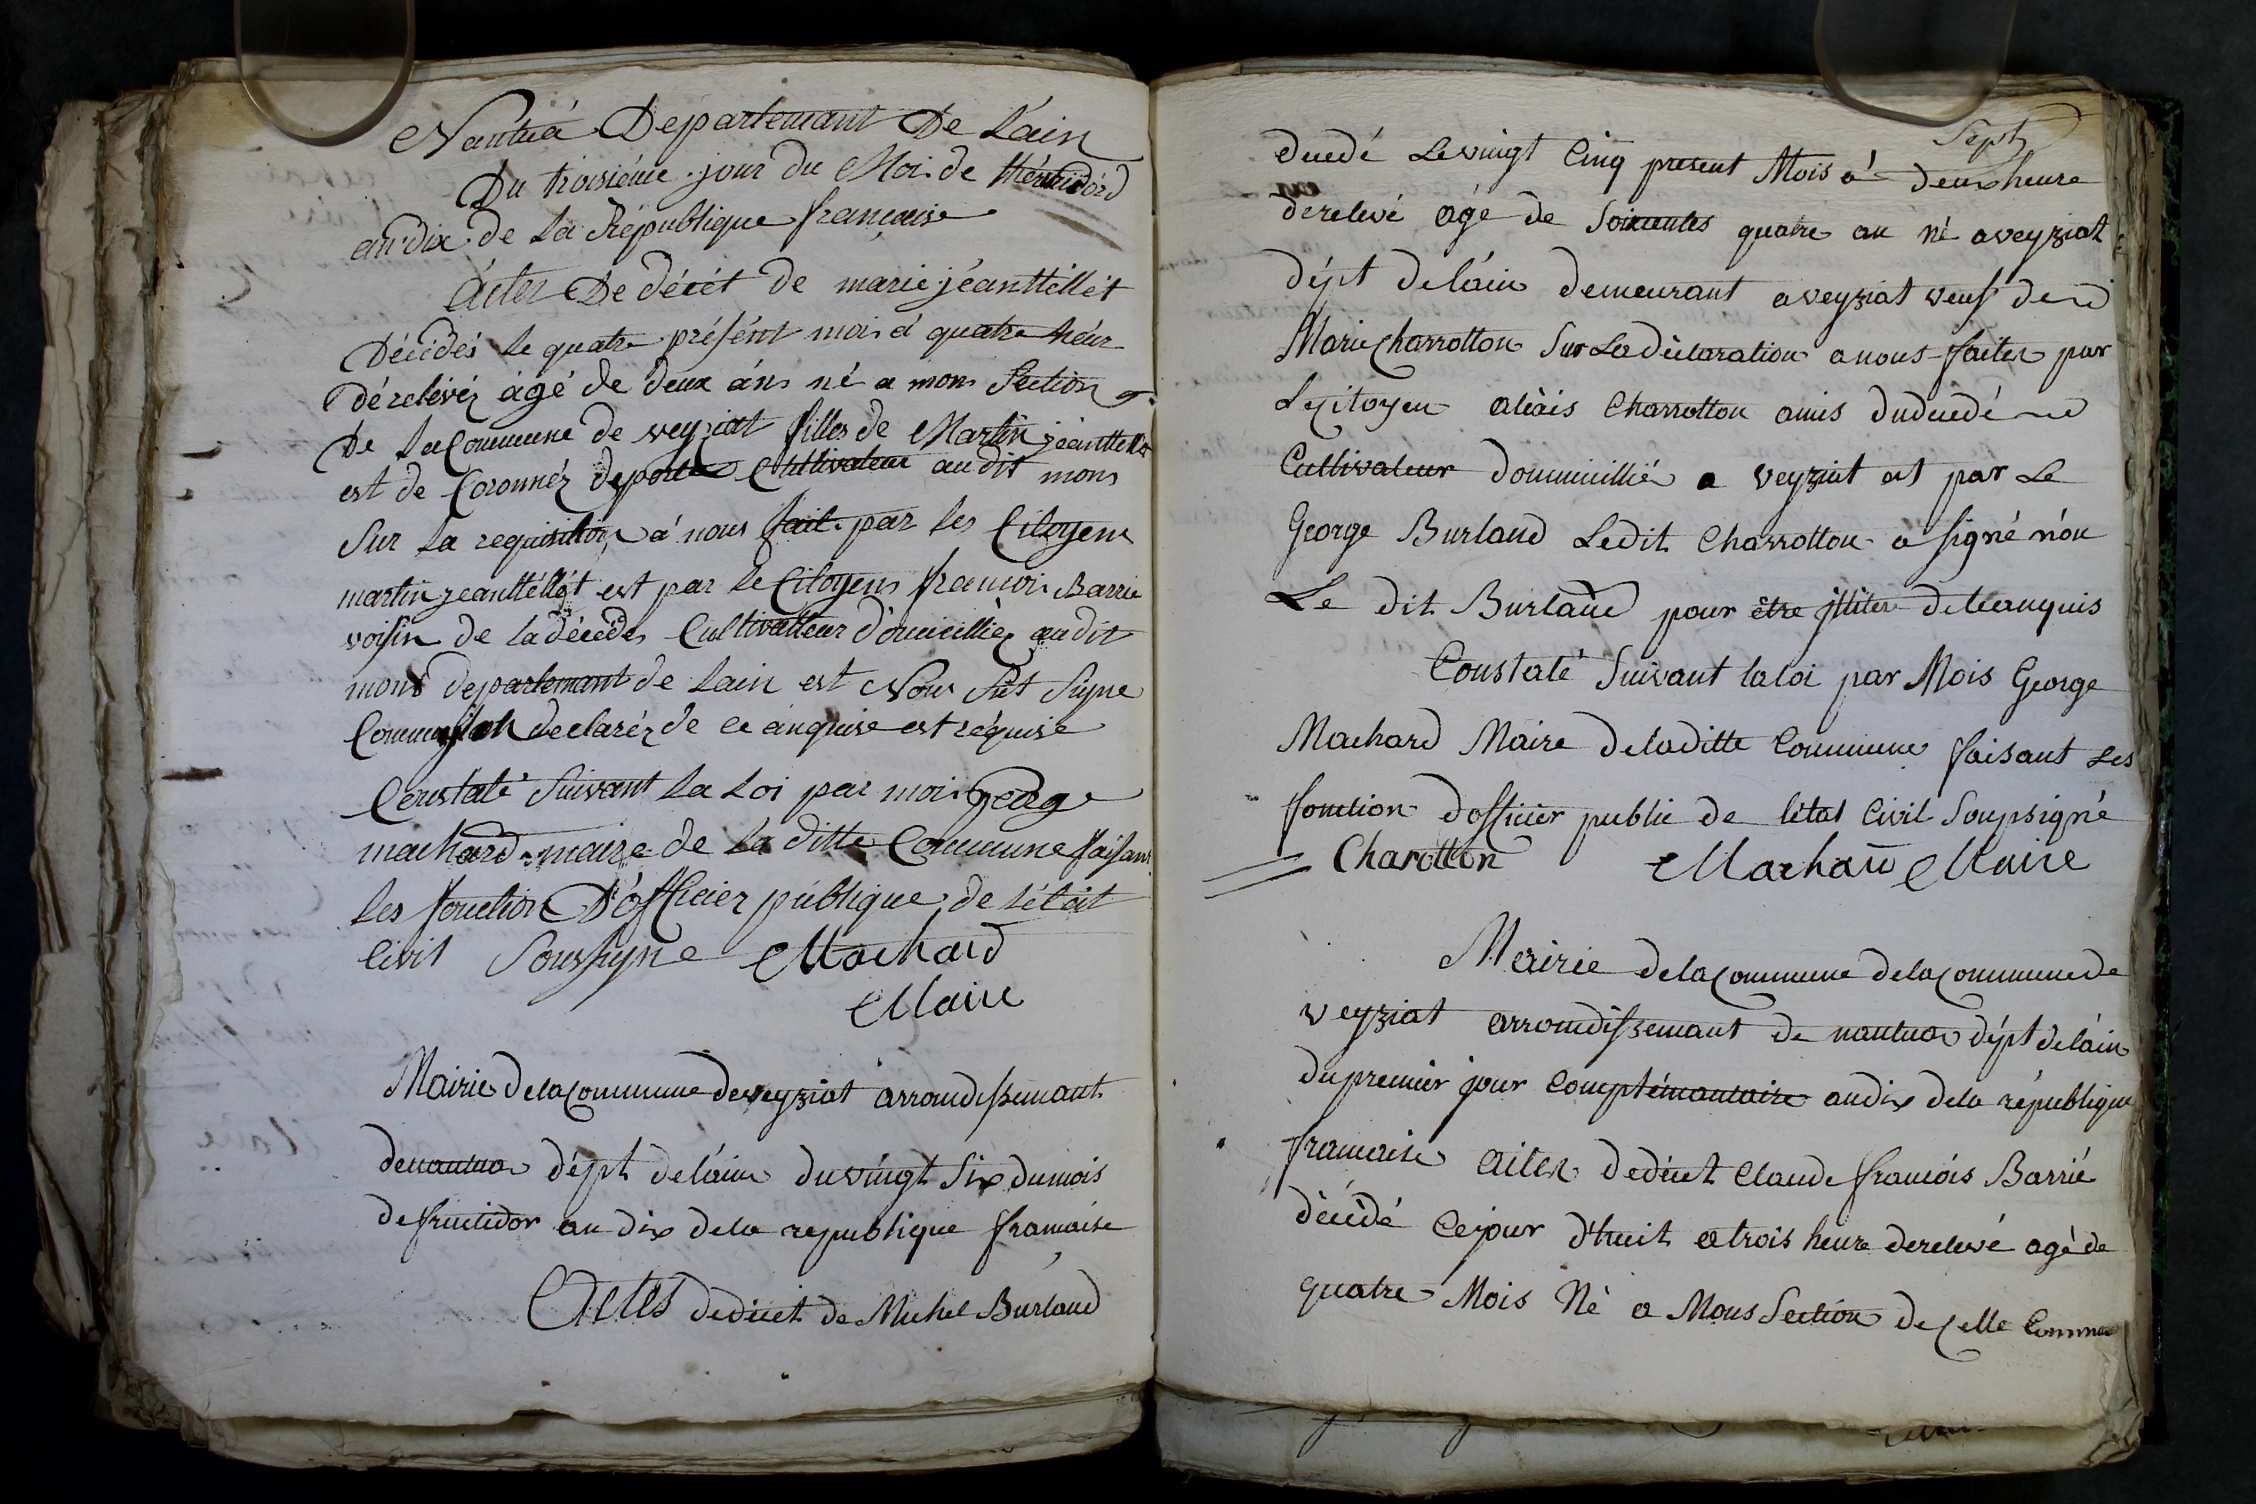 Nantua Departemant De Lain
Du troisiéme jour du Moi de thérmidord
an dix de La République française
Actes De décét de marie jéanttéllét
Décédés le quatre présént mois á quatre héur
dérelévéz ágé de deux áns né a mons Section
De La Commune de veyziat filles de Martin jéanttellét
est de Coronnéz deporte Cultivateur au dit mons
Sur La requisition á nous fait par les Citoyens
martin jeanttéllét est par le Citoyens francois Barrie
voisin de la décédés Cultivatteur domicilliéz au dit
mons departemant de Lain est Nous
declaréz de ce anquise est réquise
Constaté Suivant La Loi par moi George
machard maire de La ditte Commune faisant
les fonction D'officier publique de L'état
Civil Soussigne Machard
Maire
Mairie de la Commune de veyziat arrondissemant
de nantua dépt de l'áin du vingt Six du mois
de fructidor an dix de la republique francaise
Actes de décét de Michel Burland
Sept
décédé Le vingt Cinq present Mois á deux heure
de relevé agé de Soixentes quatre an né a veyziat
dépt de láin demeurant a veyziat veuf de
Marie Charrotton Sur La déclaration a nous faites par
Le Citoyen aléxis Charrotton amis du décédé
Cultivateur dommicillié a veyziat et par Le
George Burland Ledit Charrotton a signé nón
Le dit Burland pour être illitere de ce anquis
Constaté Suivant la loi par Mois George
Machard Maire de la ditte Commune faisant Les
fonction d'officier public de létat Civil Soupsigné
Charotton Machard Maire
Mairie de la Commune de la Commune de
veyziat arrondissemant de nantua dépt de láin
du premier jour Complémantaire an dix de la république
francaise Actes de décét Claude francóis Barrié
décédé Ce jour d'huit a trois heure de relevé agé de
quatre Mois Né a Mons Section de Celle Commune